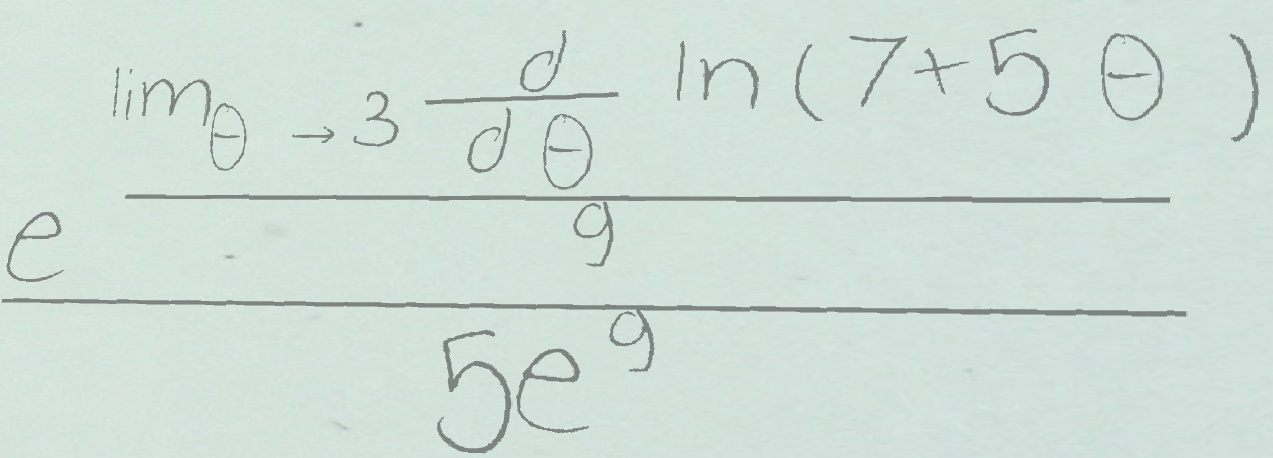 \frac{e^{\frac{\lim_{\theta \to 3} \frac{d}{d\theta} \ln(7+5\theta)}{9}}}{5e^{9}}